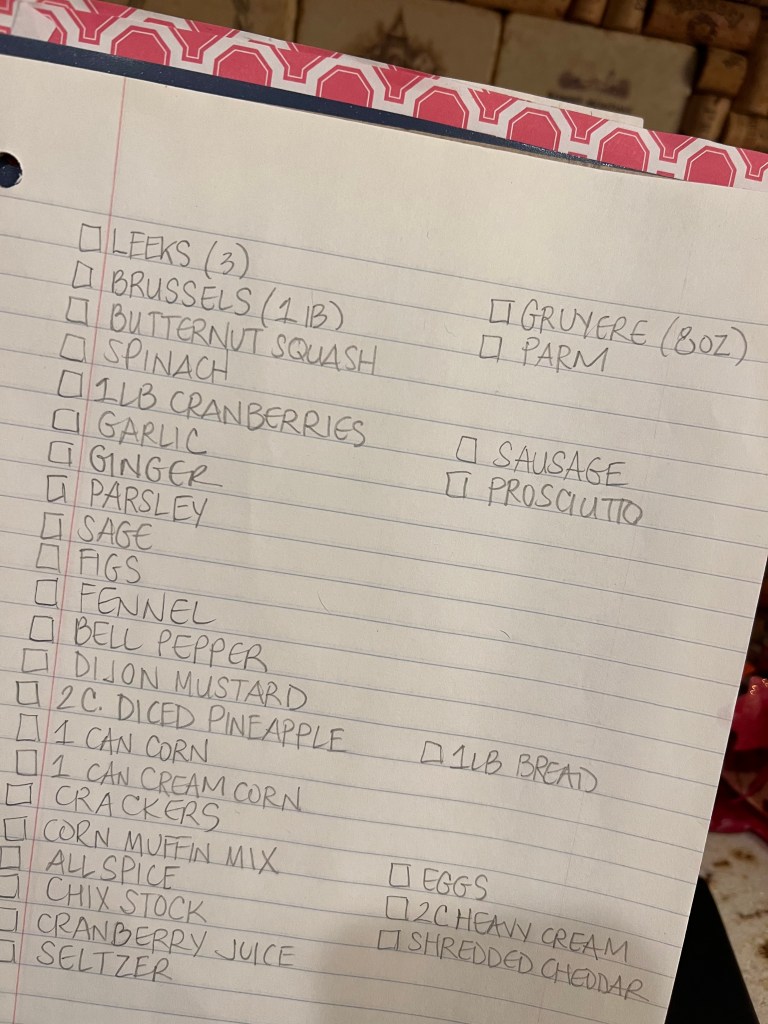 LEEKS (3)
BRUSSELS (1 lB)
BUTTERNUT SQUASH
SPINACH
1 LB CRANBERRIES
GARLIC
GINGER
PARSLEY
SAGE
FIGS
FENNEL
BELL PEPPER
DIJON MUSTARD
2 C. DICED PINEAPPLE
1 CAN CORN
1 CAN CREAM CORN
CRACKERS
CORN MUFFIN MIX
ALLSPICE
CHIX STOCK
CRANBERRY JUICE
SELTZER
GRUYERE (8OZ)
PARM
SAUSAGE
PROSCIUTTO
1LB BREAD
EGGS
2C HEAVY CREAM
SHREDDED CHEDDAR